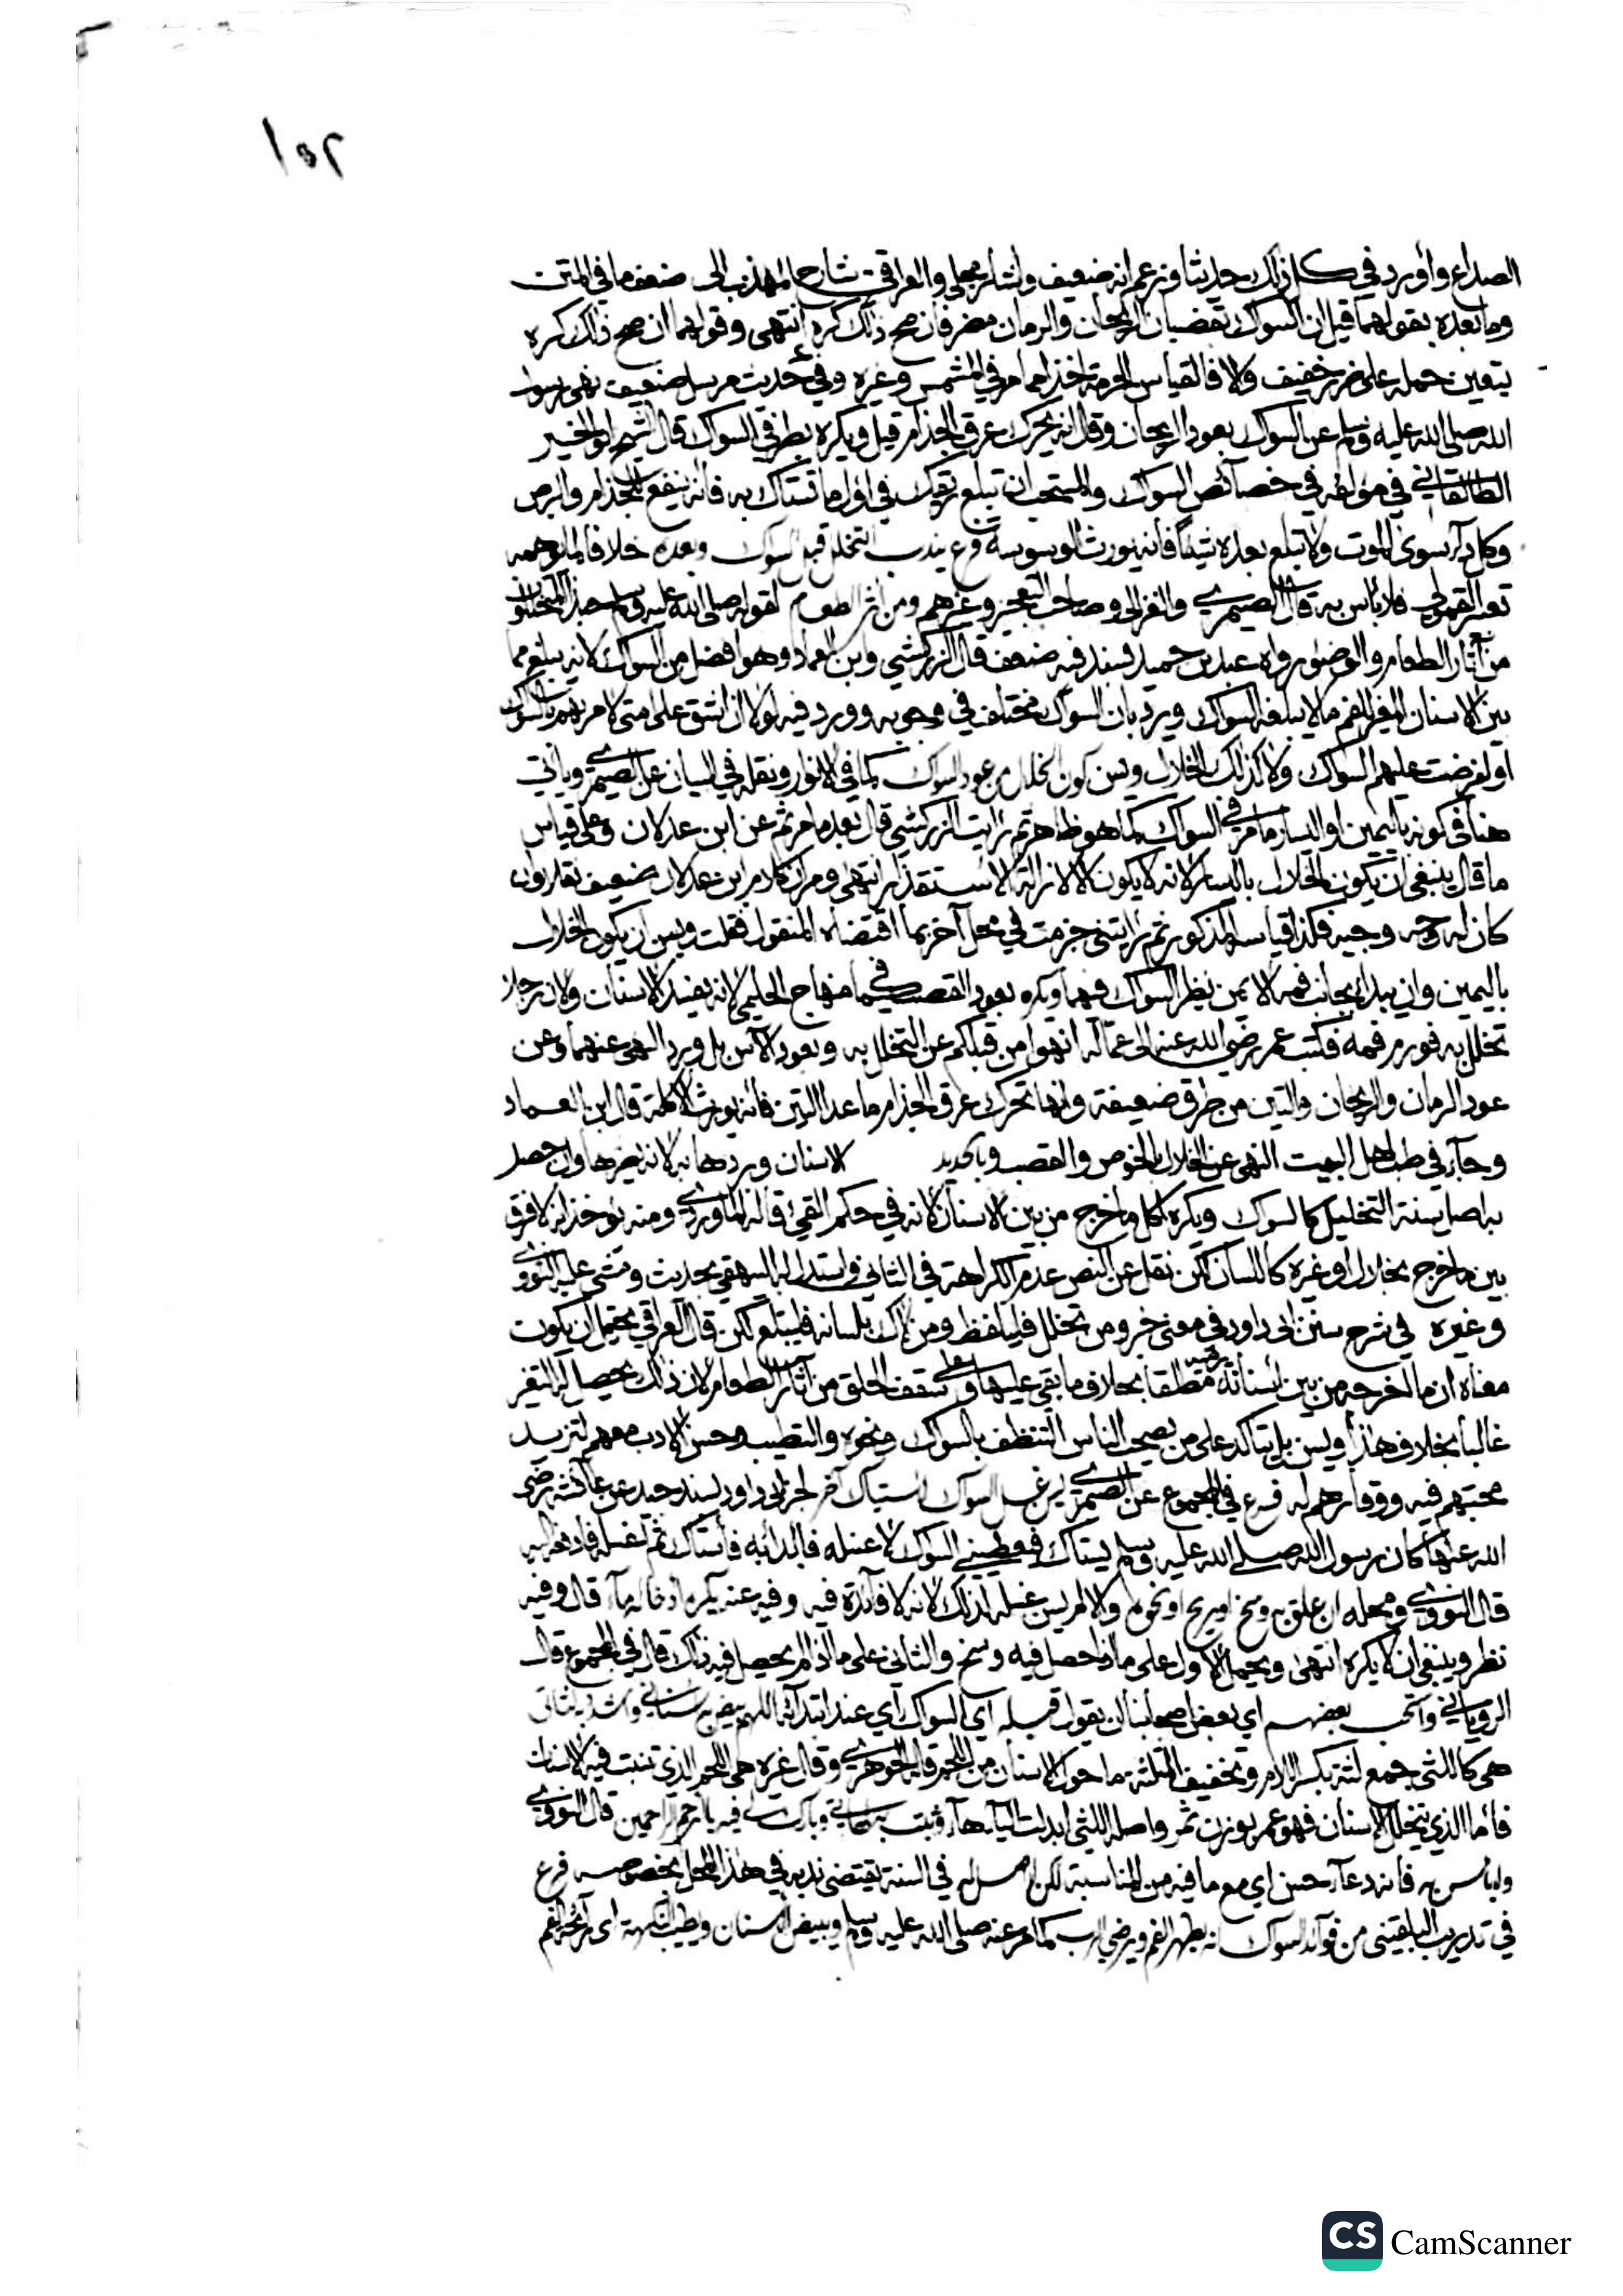 ١٥٢
الصداع وأورد في كل ذلك حديثا وزعم انه ضعيف واشار مجلي والعراقي شارح المهذب الى ضعف ما في المتن
وما بعده بقولهما قيل ان السواك بقضبان الريحان والرمان مضر فان صح ذلك كره انتهى وقولهما ان صح ذلك كره
يتعين حمله على ضرر خفيف والا فالقياس الحرمة اخذا مما مر في المشمس وغيره وفي حديث مرسل ضعيف نهى رسول
الله صلى الله عليه وسلم عن السواك بعود الريحان وقال انه يحرك عرق الجذام قيل ويكره بطرفي السواك قال الشيخ ابو الخير
الطالقاني في مؤلفه في خصائص السواك والمستحب ان تبلع ريقك في اول ما تستاك به فانه ينفع الجذام والبرص
وكل داء سوى الموت ولا تبلع بعده شيئا فانه يورث الوسوسة فرع يندب التخلل قبل السواك وبعده خلافا لما يوهمه
القمولي فلا باس به قال الصيمري والغزالي وصاحب التعجيز وغيرهم ومن اثر الطعام لقوله صلى الله عليه وسلم حبذا المتخللون
من آثار الطعام والوضوء رواه عبد بن حميد بسند فيه ضعف قال الزركشي وابن العماد وهو افضل من السواك لانه يبلغ مما
بين الاسنان المغير للفم ما لا يبلغه السواك ويرد بان السواك مختلف في وجوبه وورد فيه لولا ان اشق على امتي لامرتهم بالسواك
او لفرضت عليهم السواك ولا كذلك الخلال ويسن كون الخلال من عود السواك كما في الانوار ونقله في البيان عن الصيمري وياتي
هنا في كونه باليمين او اليسار ما مر في السواك كما هو ظاهر ثم رايت الزركشي قال بعد ما مر ثم عن ابن عدلان وعلى قياس
ما قال ينبغي ان يكون الخلال باليسار لانه لا يكون الا لازالة الاستقذار انتهى ومر ان كلام ابن عدلان ضعيف نقلا وان
كان له وجه وجيه فكذا قياسه المذكور ثم رايتني جزمت في محل آخر بما اقتضاه المنقول فقلت ويسن ان يكون الخلال
باليمين وان يبدا بجانب فمه الايمن نظير السواك فيهما ويكره بعود القصب كما في منهاج الحليمي لانه يفسد الاسنان ولان رجلا
تخلل به فورم فمه فكتب عمر رضي الله عنه الى عماله انهوا من قبلكم عن التخلل به وبعود الآس بل ورد النهي عنهما وعن
عود الرمان والريحان والتين من طرق ضعيفة وانها تحرك عرق الجذام ما عدا التين فانه يورث الاكلة قال ابن العماد
وجاء في طب اهل البيت النهي عن الخلال بالخوص والقصب وبالحديد الاسنان وبردها به لانه يضرها وان حصل
به اصل سنة التخليل كالسواك ويكره اكل ما خرج من بين الاسنان لانه في حكم القيء قاله الماوردي ومنه يؤخذ انه لا فرق
بين ما خرج بخلال او غيره كاللسان لكن نقل عن النص عدم الكراهة في الثاني واستدل له البيهقي بحديث ومشى عليه النووي
وغيره في شرح سنن ابي داود في معنى خبر ومن تخلل فليلفظ ومن لاك بلسانه فليبتلع لكن قال العراقي يحتمل ان يكون
معناه ان ما اخرجه من بين اسنانه يرميه مطلقا بخلاف ما بقي عليها وعلى سقف الحلق من آثار الطعام لان ذلك يحصل له التغير
غالبا بخلاف هذا ويسن بل يتاكد على من يصحب الناس التنظف بالسواك ونحوه والتطيب وحسن الادب معهم لتزيد
محبتهم فيه ووقارهم له فرع في المجموع عن الصيمري غسل السواك لخبر ابي داود بسند جيد عن عائشة رضي
الله عنها كان رسول الله صلى الله عليه وسلم يستاك فيعطيني السواك لاغسله فابدا به فاستاك ثم اغسله فادفعه اليه
قال النووي ومحله ان علق به وسخ او ريح او نحوه والا لم يسن غسله لذلك لانه لا فائدة فيه وفيه عنه يكره ادخاله ماء قال وفيه
نظر وينبغي ان لا يكره انتهى ويحمل الاول على ما اذا حصل فيه وسخ والثاني على ما اذا لم يحصل فيه ذلك قال في المجموع قال
الروياني واستحب بعضهم اي بعض اصحابنا ان يقول قبله اي السواك اي عند ابتدائه اللهم بيض به اسناني وشد به لثاتي
هي كاللثى جمع لثة بكسر اللام وتخفيف المثلثة ما حول الاسنان من اللحم قاله الجوهري وقال غيره هي اللحم الذي تنبت فيه الاسنان
فاما الذي يتخلل الاسنان فهو عمر بوزن تمر واصلها اللثي ابدلت الياء هاء وثبت به لهاتي وبارك لي فيه يا ارحم الراحمين قال النووي
ولا باس به فانه دعاء حسن اي مع ما فيه من المناسبة لكن لا اصل له في السنة يقتضي ندبه في هذا المحل بخصوصه فرع
في تدريب البلقيني من فوائد السواك انه يطهر الفم ويرضي الرب كما مر عنه صلى الله عليه وسلم ويبيض الاسنان ويطيب النكهة اي رائحة الفم
CS CamScanner